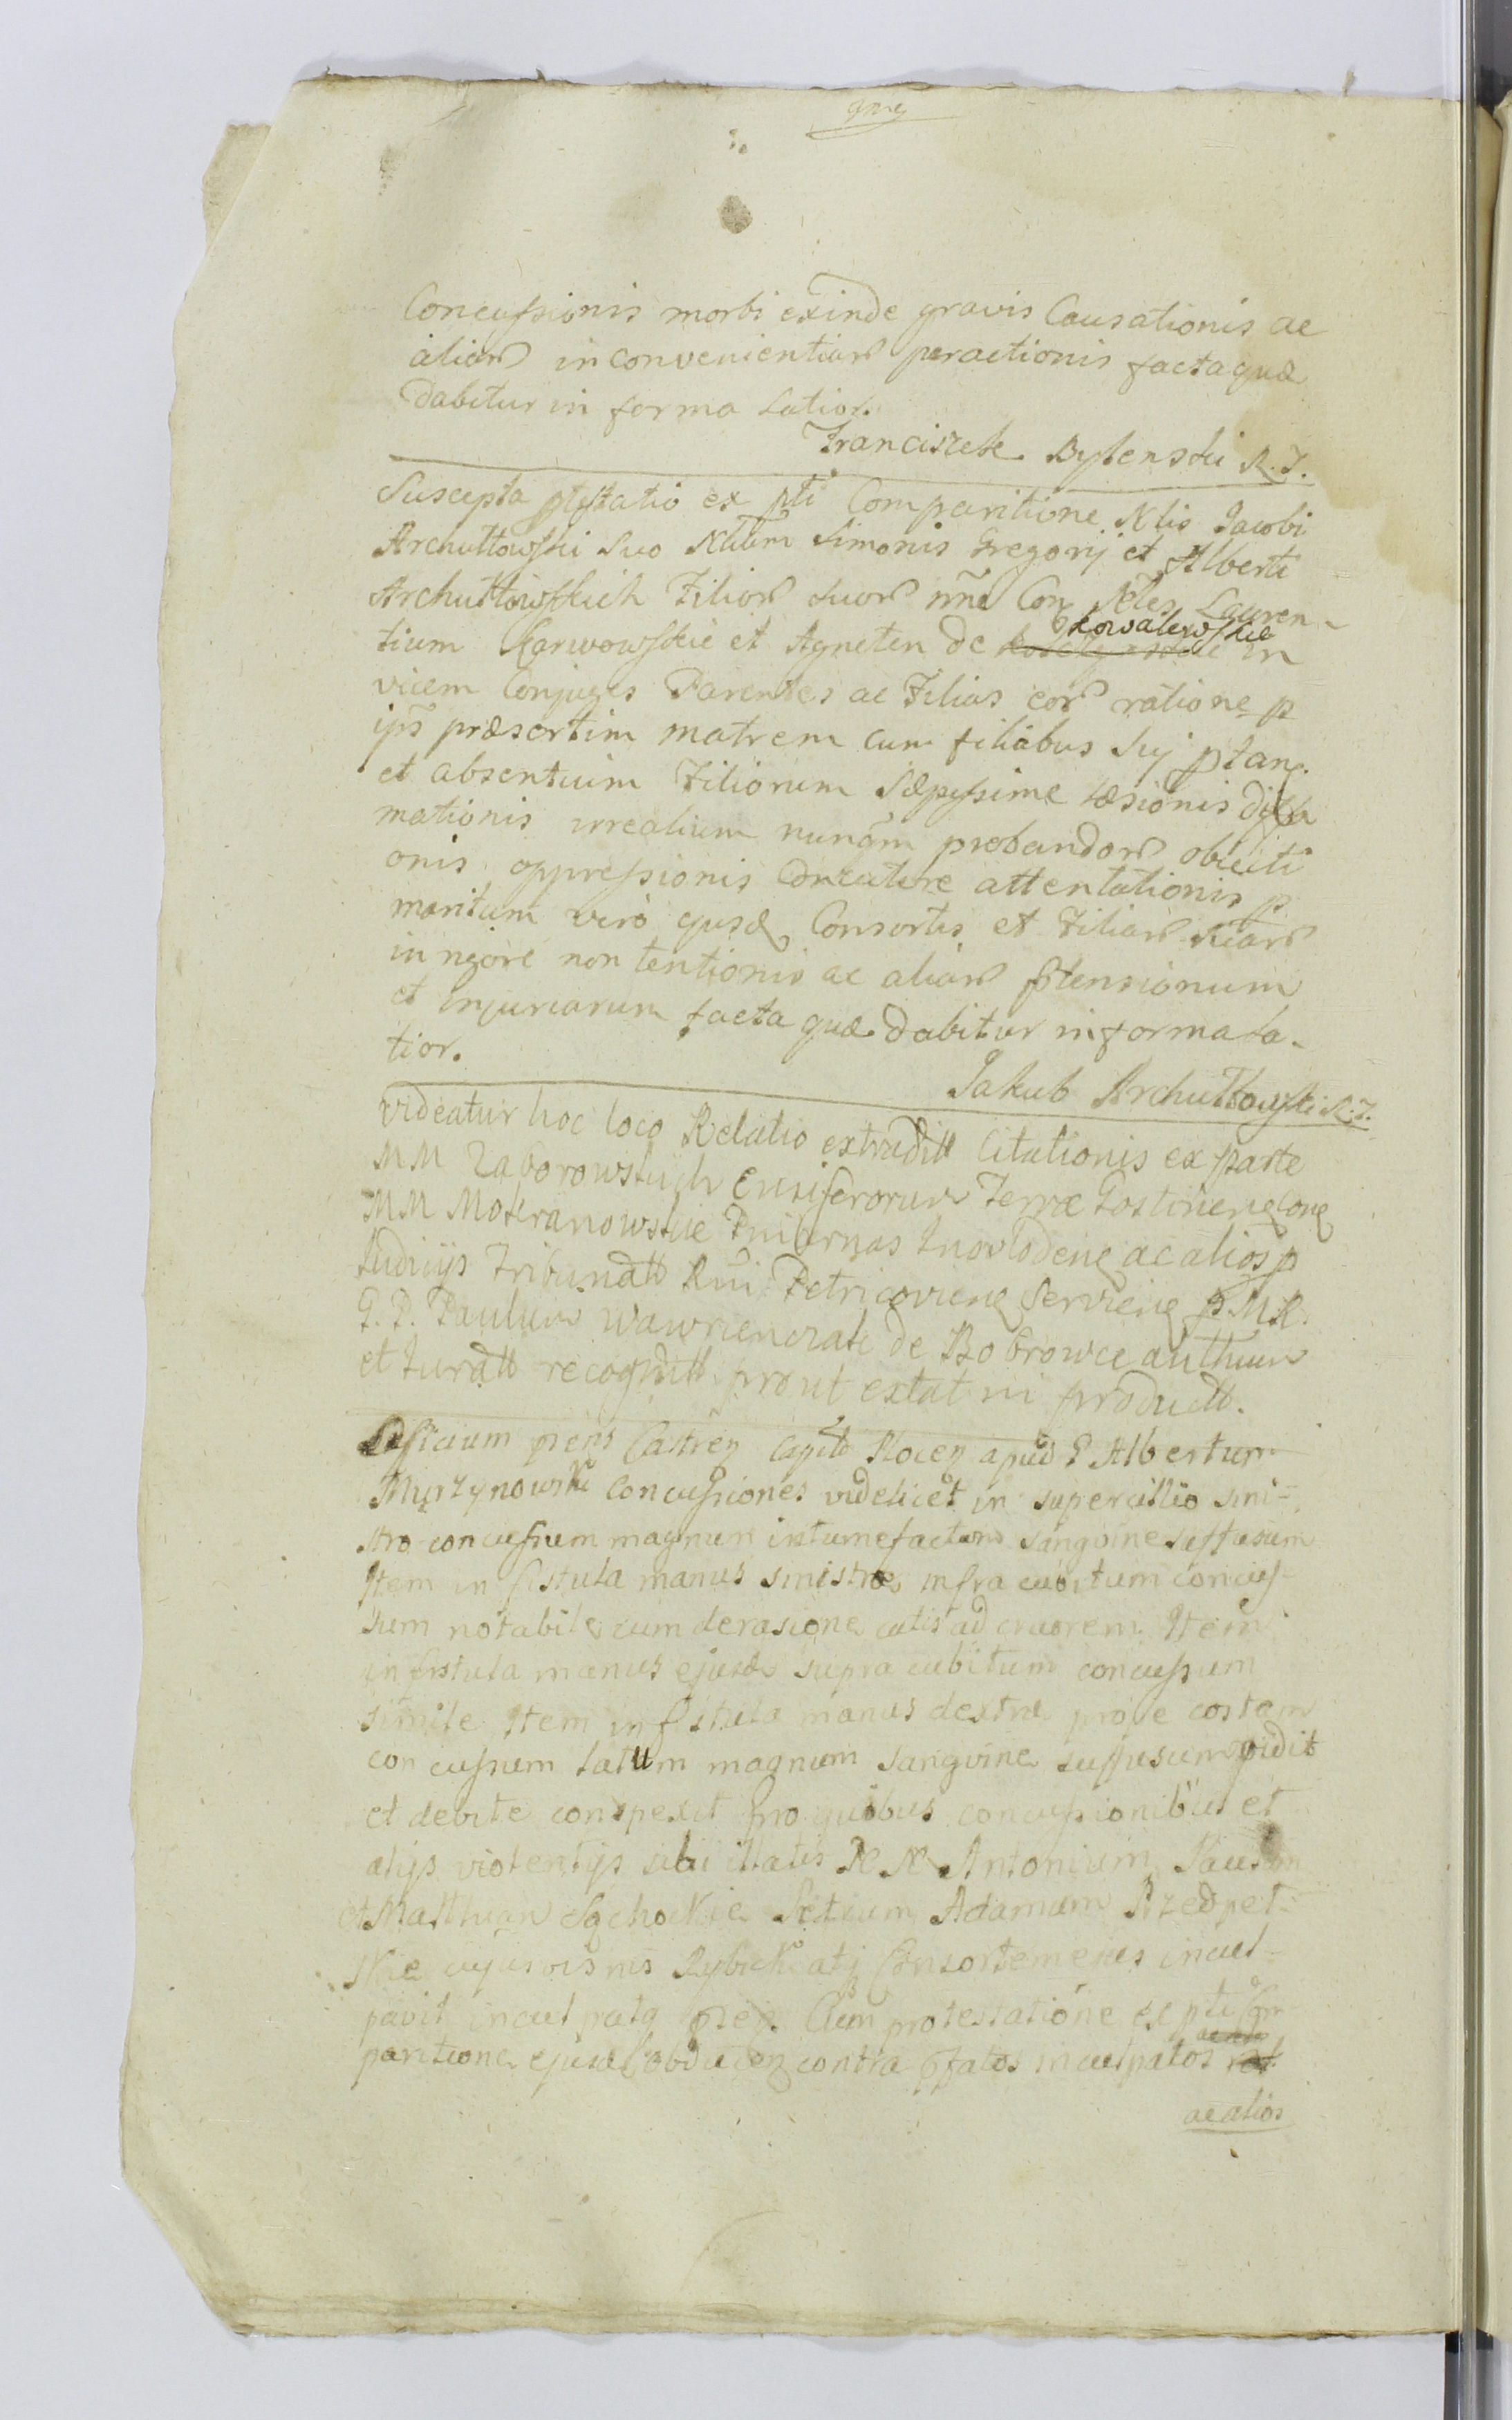 Concussionis morbi exinde gravis Causationis ac
aliar inconvenientiar peractionis facta quæ
Dabitur in forma Latior.
Franciszek Bylenski R. T.
Suscepta ptestatio ex pti Comparitione Nlis Jacobi
Archuttowski suo Nlium Simonis Gregorij et Alberti
Archuttowskich Filior suor nne Con Nles Lauren-
tium Karwowskie et Agneten de Kowalewskie in
vicem Conjuges Parentes ac Filias eor ratione p
ips præsertim matrem cum filiabus sui ptan.
et absentium Filiorum Sæpissime Læsionis diffa
mationis irrealium nunqm probandor obiecti
onis oppressionis attentationis p
maritum vero ejusd Consortis et Filiar suar
in rigore non tentionis ac aliar ptensionum
et injuriarum facta quæ dabitur in forma La-
tior.
Jakub Archuttowski R. T.
Videatur hoc loco Relatio extradit Citationis ex parte
MM Zaborowskich Ensiferorum Terræ Gostinen
MM Mokranowskie ac alios p
Judiciis Tribunalt Rni Petricovien Servien p. M R.
G. P. Paulum Wawrienczak de Bobrowce authum
et Juratt recognitt prout extat in productt.
Officium pens Castren Capit Plocen apud G Albertum
Myrzynowski concussiones videlicet in supercillio sini-
stro concussum magnum intumefactum sangvine suffusum
Item in fistula manus sinistræ infra cubitum concus-
sum notabile cum derasione cutis ad cruorem Item
in fistula manus ejusd supra cubitum concussum
simile Item in fistula manus dextræ prope costam
concussum latum magnum sangvine suffusum vidit
et debite conspexit pro quibus concussionibus et
alijs violentijs sibi illatis N N Antonium Paulum
et Matthæum Sqchockie Adamum Rzedpet-
skie Consortem eius incul-
pavit inculpatq Cum protestatione ex pti Com
paritione ejusd obducen contra pfatos inculpatos
ac alios